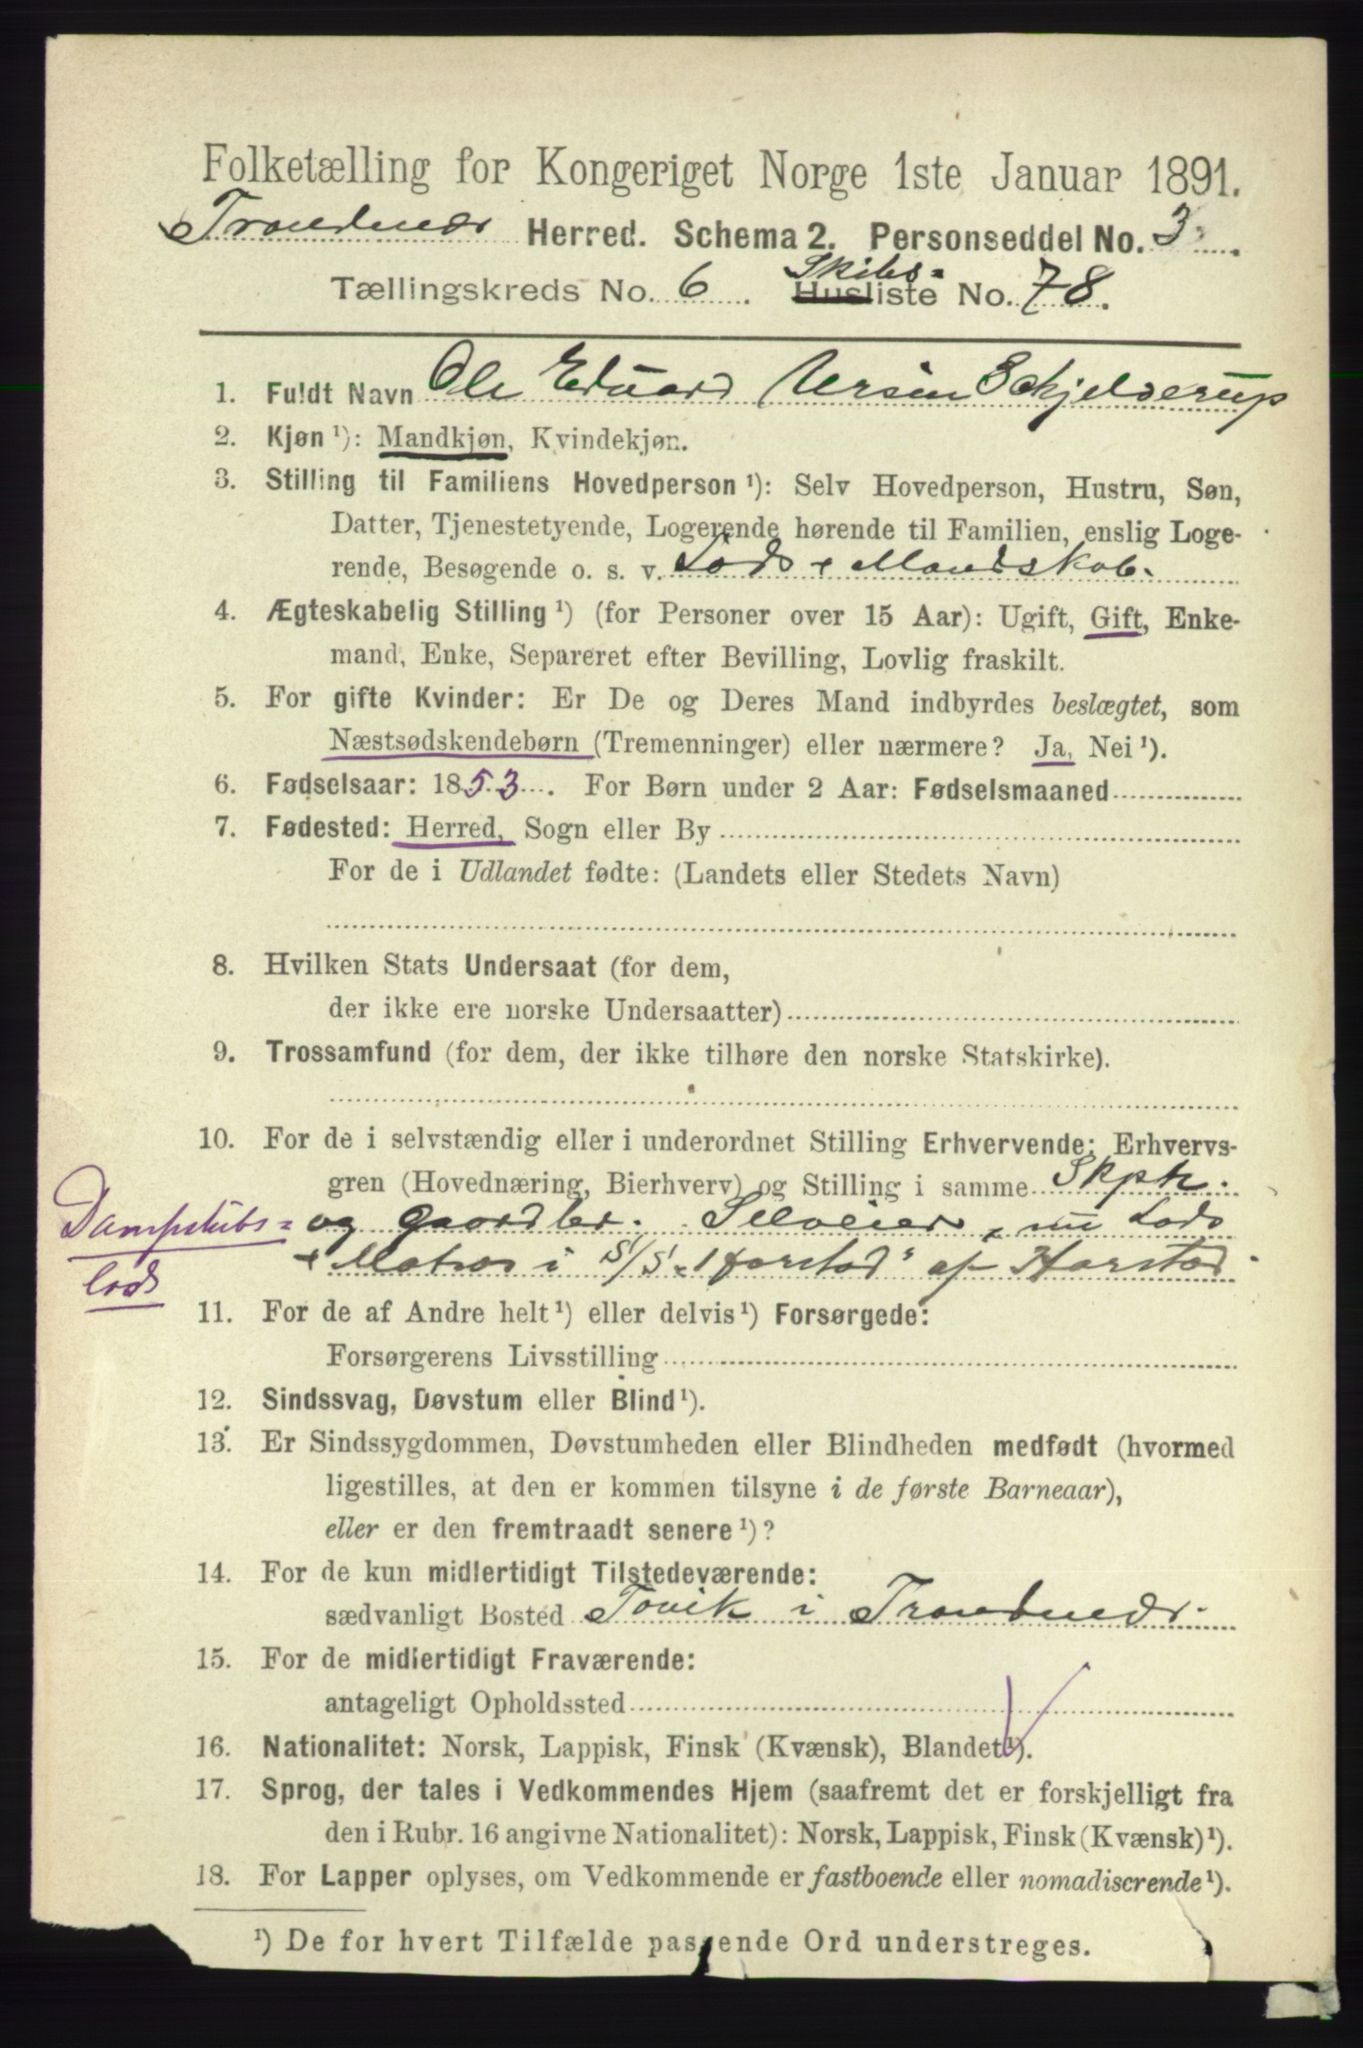 Folketælling for Kongeriget Norge 1ste Januar 1891.
Trondenæs Herred. Schema 2. Personseddel No. 3
Tællingskreds No. 6 Skibs- Husliste No. 78.
1. Fuldt Navn Ole Eduard Ursin Schjelderup
2. Kjøn ¹): Mandkjøn, Kvindekjøn.
3. Stilling til Familiens Hovedperson ¹): Selv Hovedperson, Hustru, Søn,
Datter, Tjenestetyende, Logerende hørende til Familien, enslig Loge-
rende, Besøgende o. s. v. Lods + Mandskab.
4. Ægteskabelig Stilling ¹) (for Personer over 15 Aar): Ugift, Gift, Enke-
mand, Enke, Separeret efter Bevilling, Lovlig fraskilt.
5. For gifte Kvinder: Er De og Deres Mand indbyrdes beslægtet, som
Næstsødskendebørn (Tremenninger) eller nærmere? Ja, Nei ¹).
6. Fødselsaar: 1853. For Børn under 2 Aar: Fødselsmaaned
7. Fødested: Herred, Sogn eller By
For de i Udlandet fødte: (Landets eller Stedets Navn)
8. Hvilken Stats Undersaat (for dem,
der ikke ere norske Undersaatter)
9. Trossamfund (for dem, der ikke tilhøre den norske Statskirke).
10. For de i selvstændig eller i underordnet Stilling Erhvervende: Erhvervs-
gren (Hovednæring, Bierhverv) og Stilling i samme Skph.
Dampskibs= og Gaardbr. Selveier, nu Lods
lods + Matros i S/S "Harstad" af Harstad
11. For de af Andre helt ¹) eller delvis ¹) Forsørgede:
Forsørgerens Livsstilling
12. Sindssvag, Døvstum eller Blind ¹).
13. Er Sindssygdommen, Døvstumheden eller Blindheden medfødt (hvormed
ligestilles, at den er kommen tilsyne i de første Barneaar),
eller er den fremtraadt senere ¹)?
14. For de kun midlertidigt Tilstedeværende:
sædvanligt Bosted Tovik i Trondenæs.
15. For de midlertidigt Fraværende:
antageligt Opholdssted
16. Nationalitet: Norsk, Lappisk, Finsk (Kvænsk), Blandet ¹).
17. Sprog, der tales i Vedkommendes Hjem (saafremt det er forskjelligt fra
den i Rubr. 16 angivne Nationalitet): Norsk, Lappisk, Finsk (Kvænsk) ¹).
18. For Lapper oplyses, om Vedkommende er fastboende eller nomadiserende ¹).
¹) De for hvert Tilfælde passende Ord understreges.